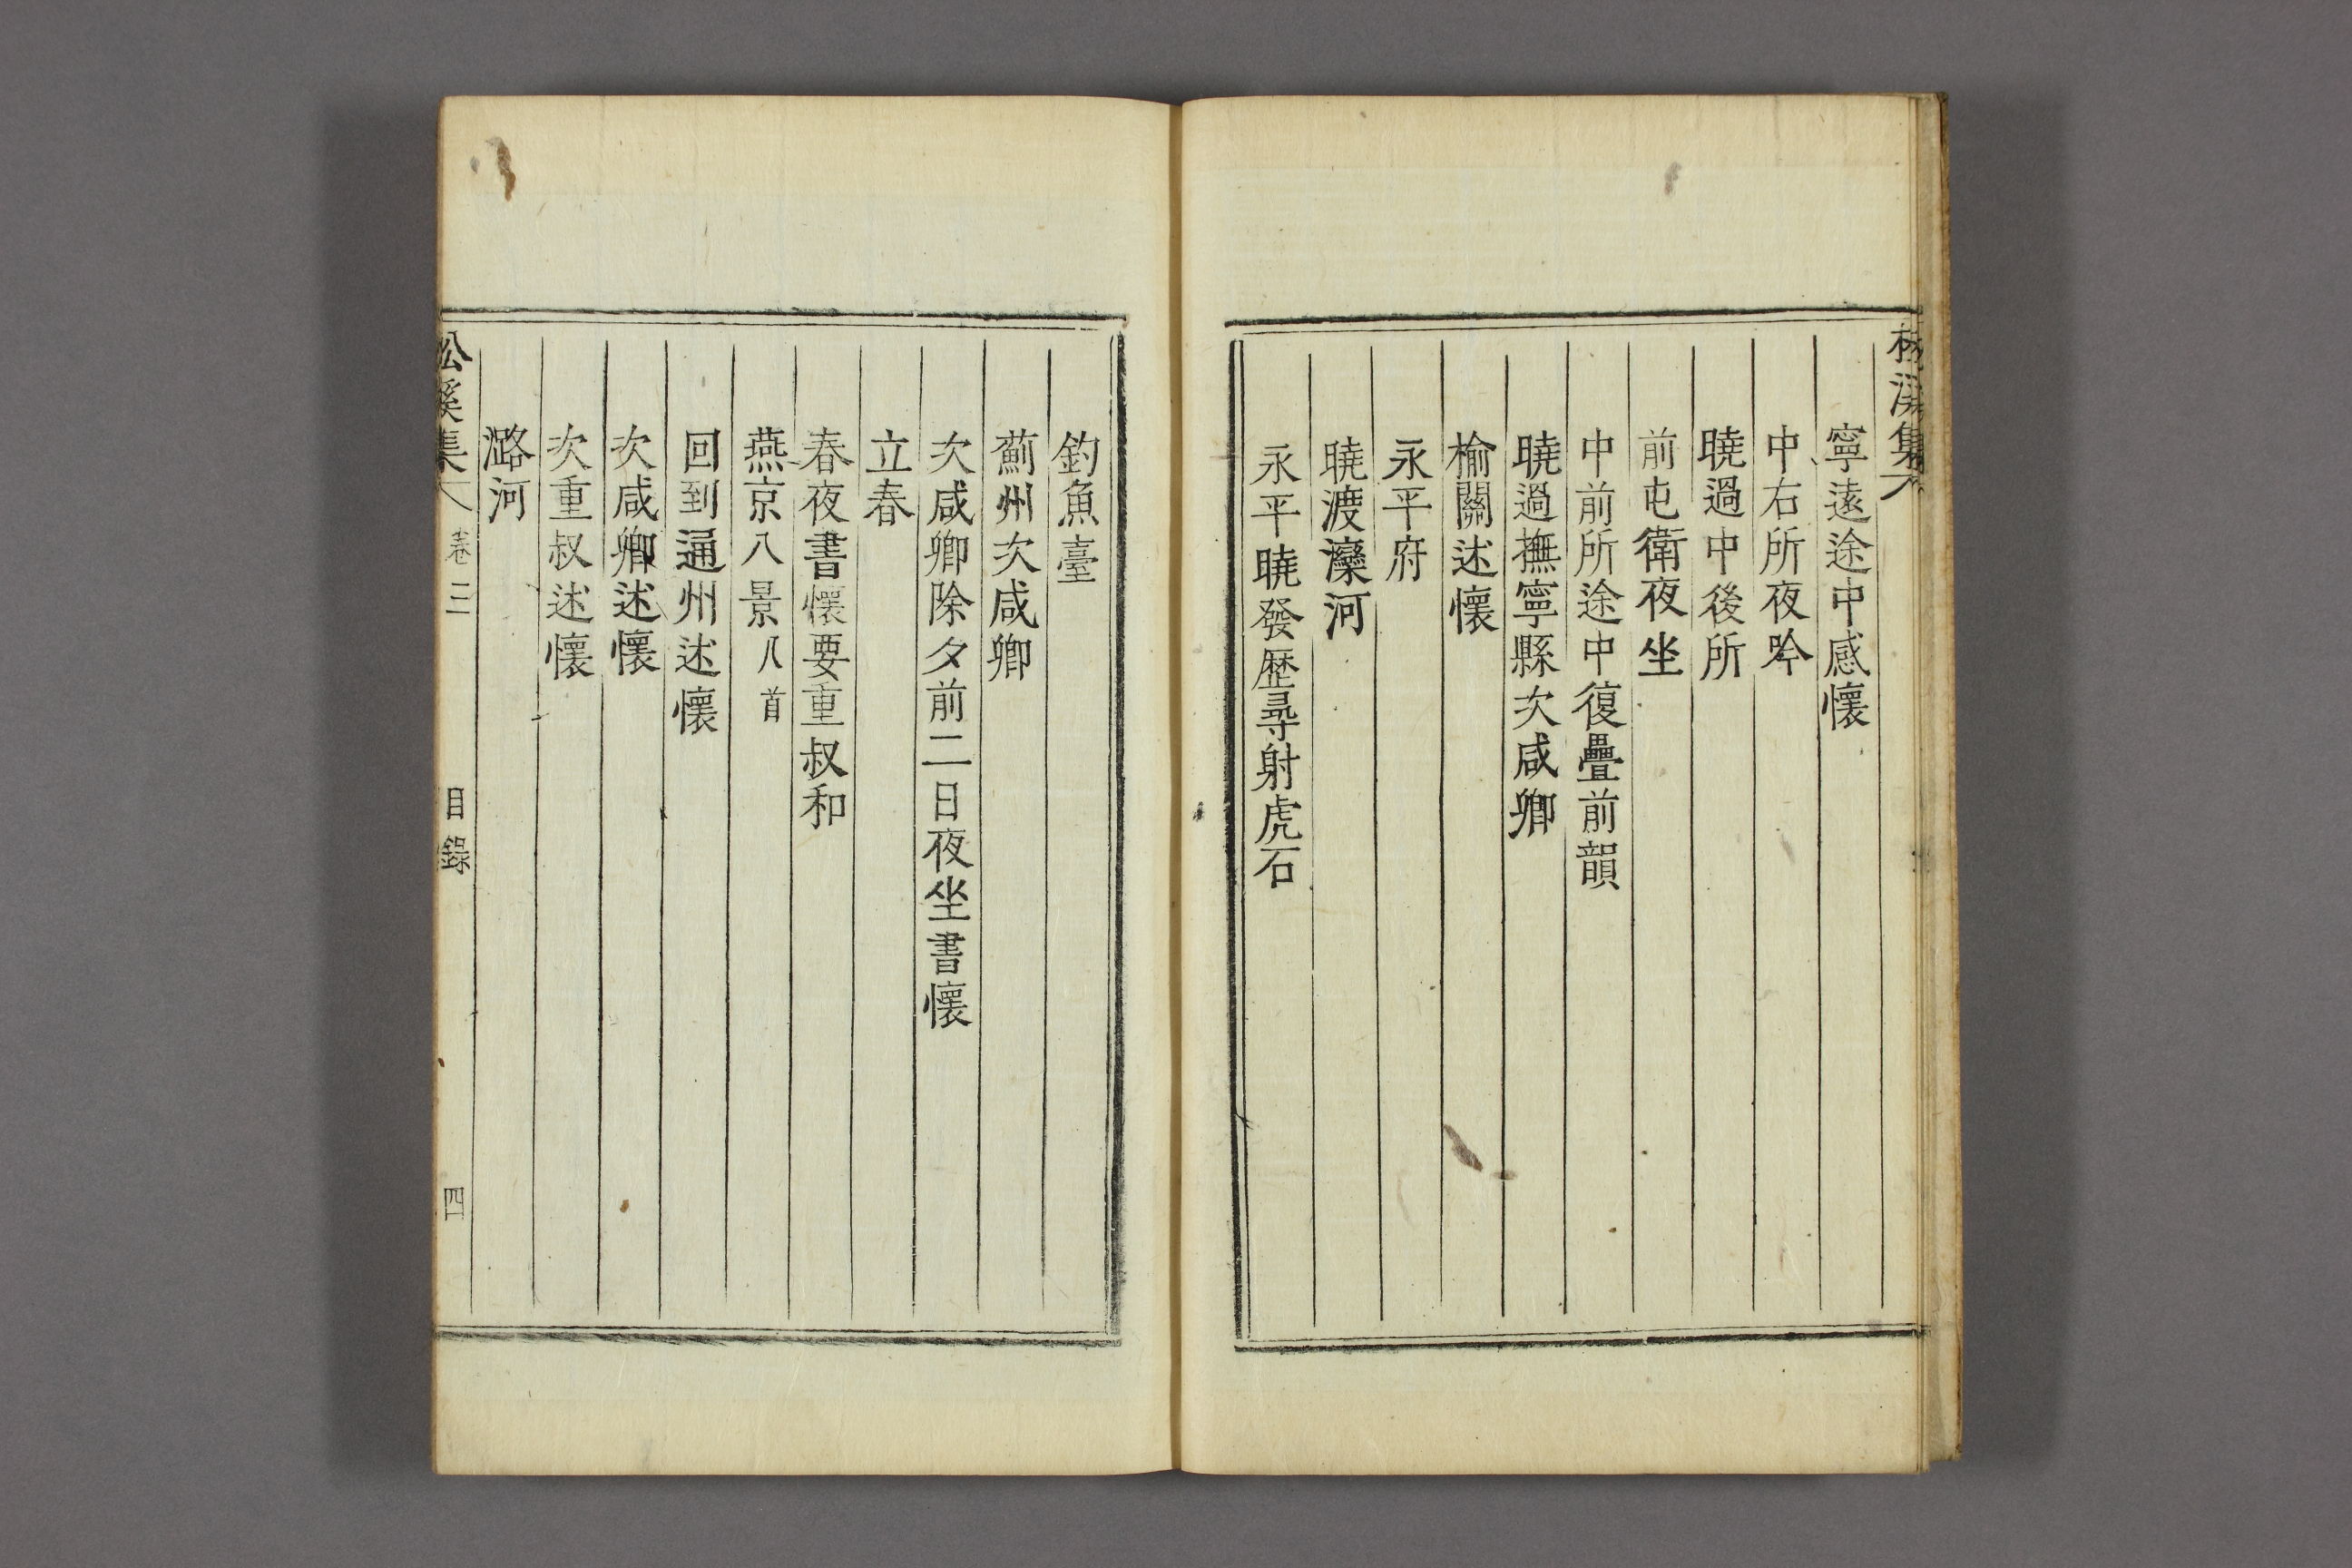 寧遠途中感懷
中右所夜吟
曉過中後所
前屯衛夜坐
中前所途中復疊前韻
曉過撫寧縣次咸卿
榆關述懷
永平府
曉渡灤河
永平曉發歷尋射虎石
釣魚臺
薊州次咸卿
次咸卿除夕前二日夜坐書懷
立春
春夜書懷要重叔和
燕京八景八首
回到通州述懷
次咸卿述懷
次重叔述懷
潞河
松溪集 卷三 目錄 四